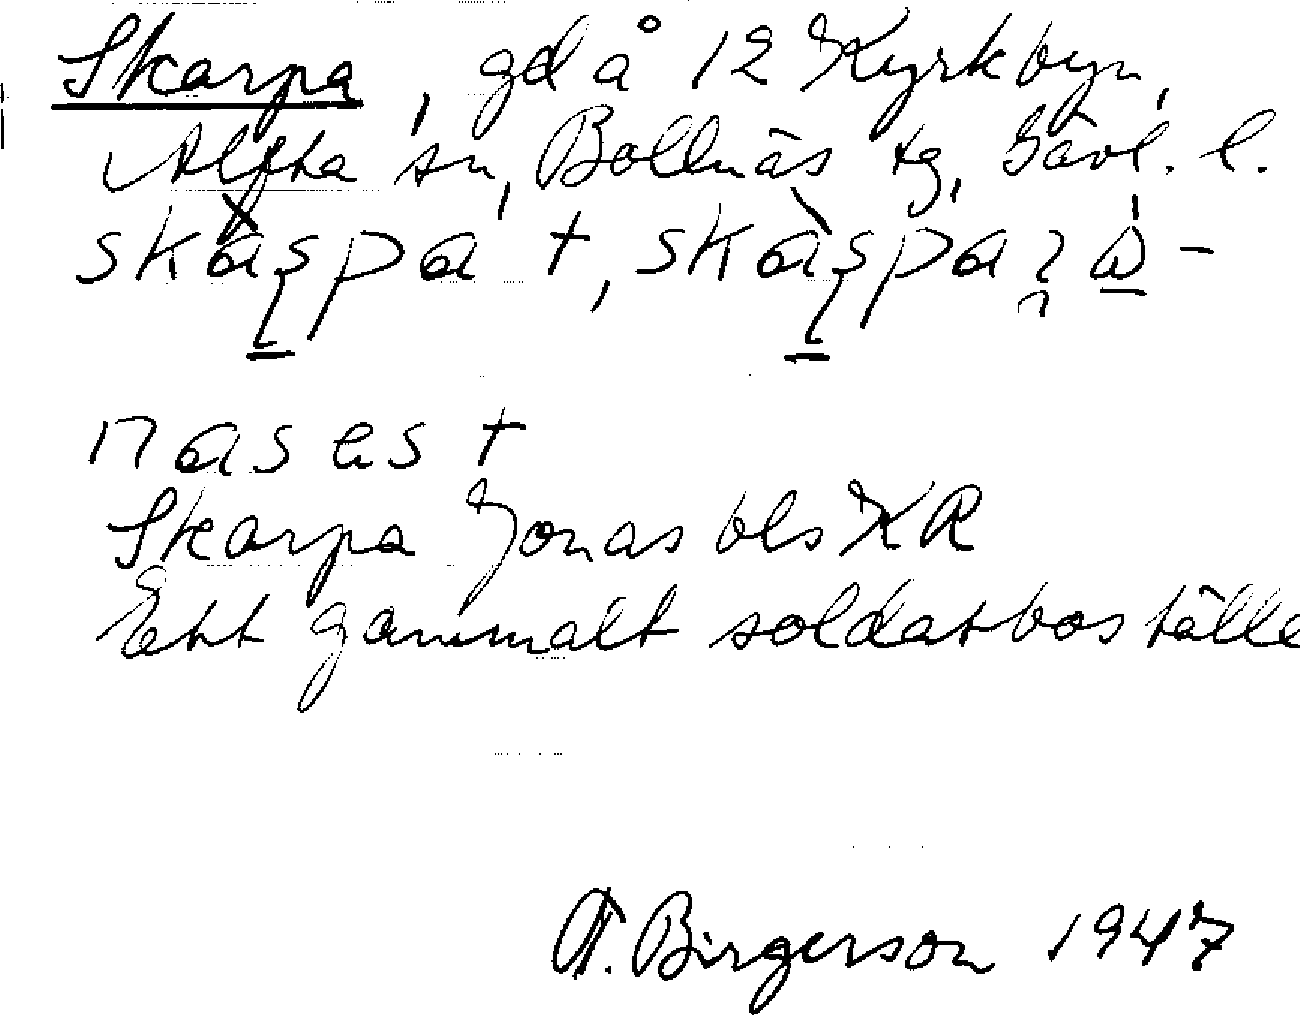 Skarpa, gd å 12 Kyrkbyn,
Alfta sn, Bollnäs tg, Gävl. l.
skàṣpa +, skàṣpa
nases +
Skarpa Jonas bls KR
Ett gammalt soldatboställe
A. Birgerson 1947